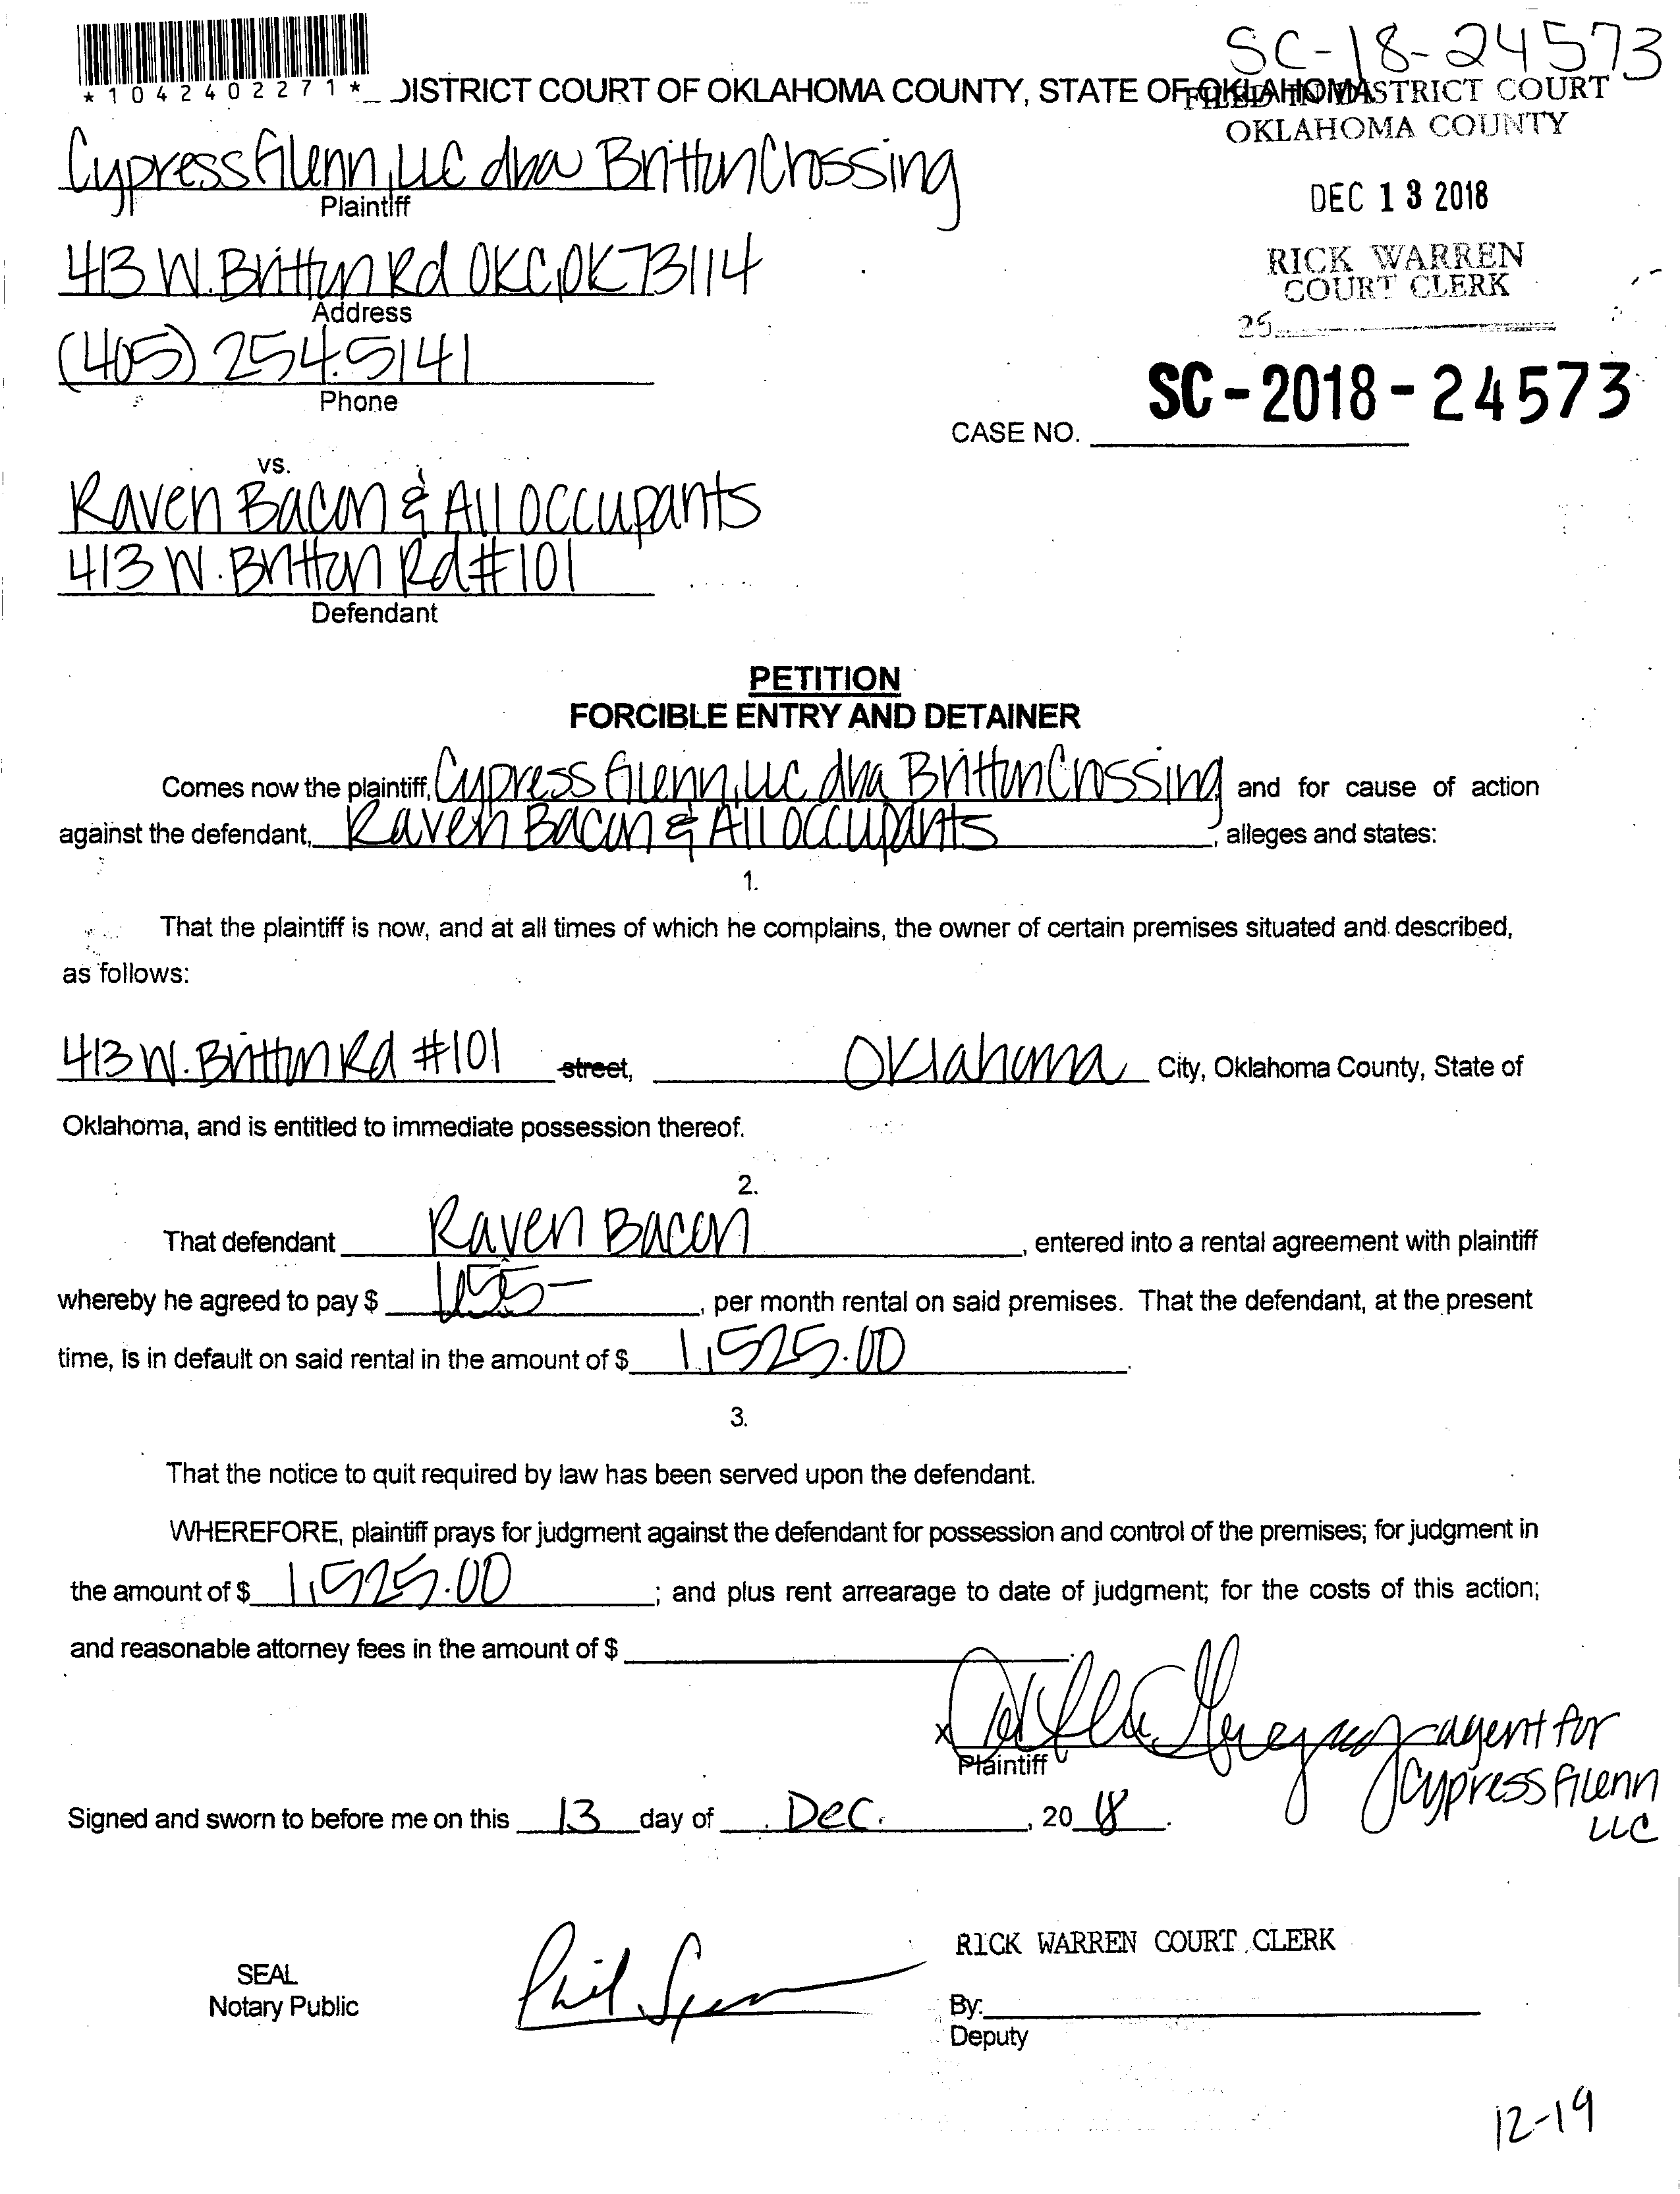 SC-18-24573
*1042402271*
DISTRICT COURT OF OKLAHOMA COUNTY, STATE OF OKLAHOMA
FILED IN DISTRICT COURT
OKLAHOMA COUNTY
Cypress Glenn, LLC dba Britton Crossing
Plaintiff
DEC 13 2018
413 W. Britton Rd OKC, OK 73114
Address
RICK WARREN
COURT CLERK
25
(405) 254.5141
Phone
SC-2018-24573
CASE NO.
vs.
Raven Bacon & All occupants
413 W. Britton Rd #101
Defendant
PETITION
FORCIBLE ENTRY AND DETAINER
Comes now the plaintiff, Cypress Glenn, LLC dba Britton Crossing and for cause of action
against the defendant, Raven Bacon & All occupants, alleges and states:
1.
That the plaintiff is now, and at all times of which he complains, the owner of certain premises situated and described,
as follows:
413 W. Britton Rd #101 street, Oklahoma City, Oklahoma County, State of
Oklahoma, and is entitled to immediate possession thereof.
2.
That defendant Raven Bacon, entered into a rental agreement with plaintiff
whereby he agreed to pay $ , per month rental on said premises. That the defendant, at the present
time, is in default on said rental in the amount of $ 1,525.00.
3.
That the notice to quit required by law has been served upon the defendant.
WHEREFORE, plaintiff prays for judgment against the defendant for possession and control of the premises; for judgment in
the amount of $ 1,525.00; and plus rent arrearage to date of judgment; for the costs of this action;
and reasonable attorney fees in the amount of $ .
x agent for
Plaintiff
Cypress Glenn
LLC
Signed and sworn to before me on this 13 day of Dec., 2018.
RICK WARREN COURT CLERK
SEAL
Notary Public
Phil
By:
Deputy
12-19